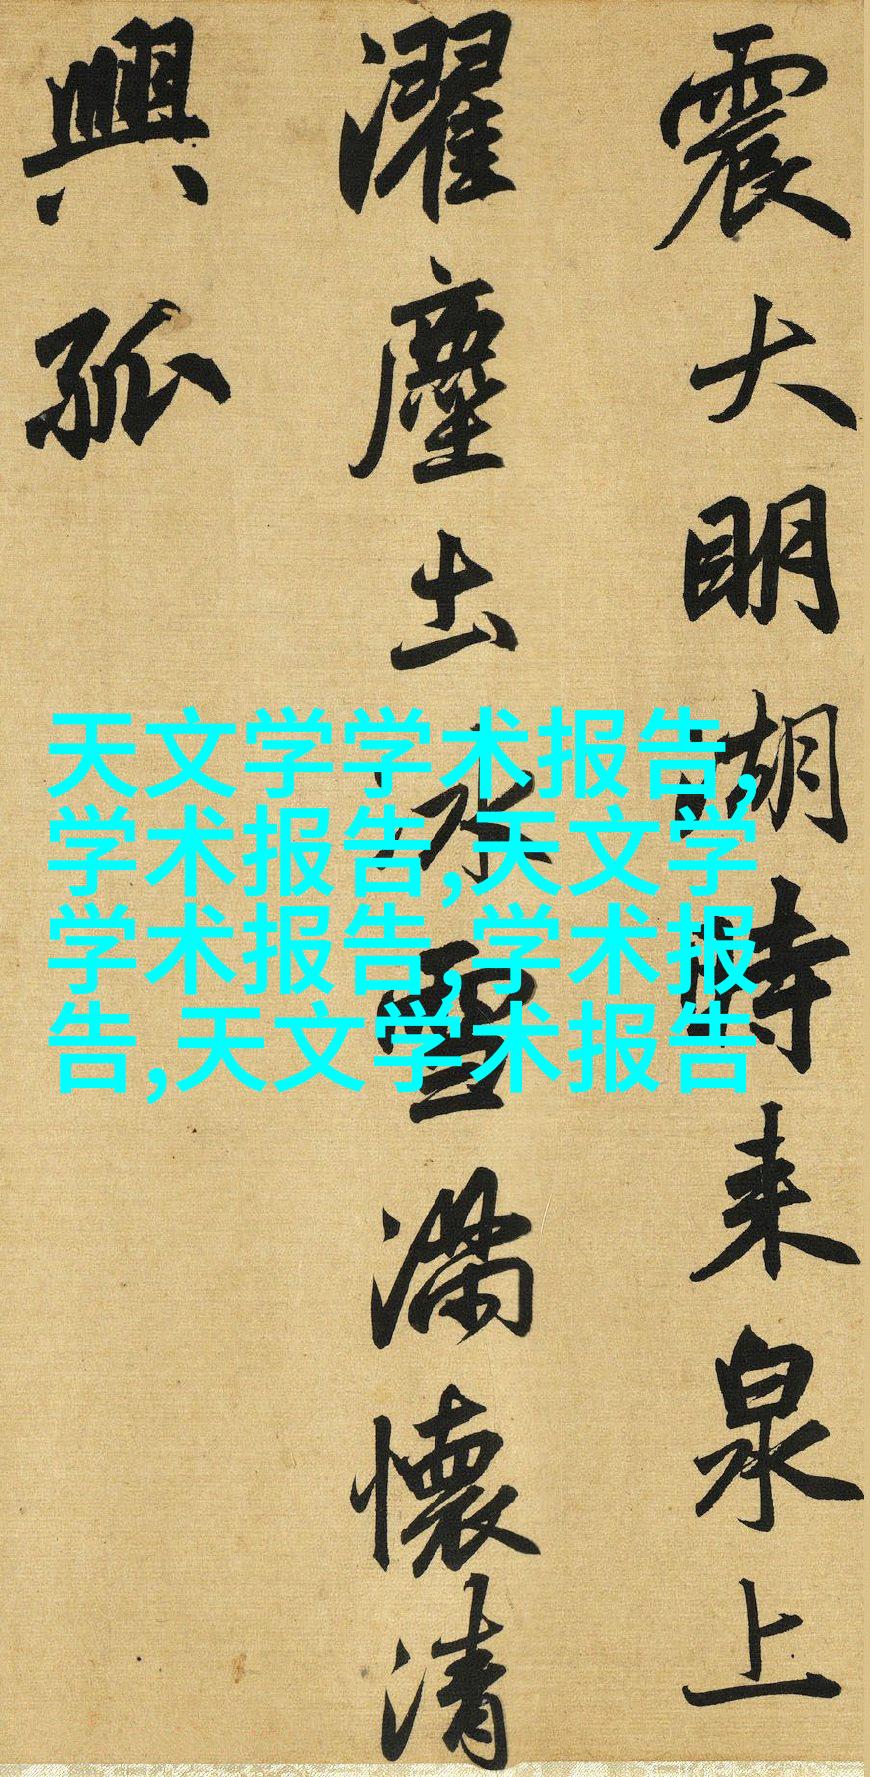 震大明湖時来泉上
濯塵土冰雪滿懷清
興孤
天文学学术报告,
学术报告,天文学
学术报告,学术报
告,天文学术报告